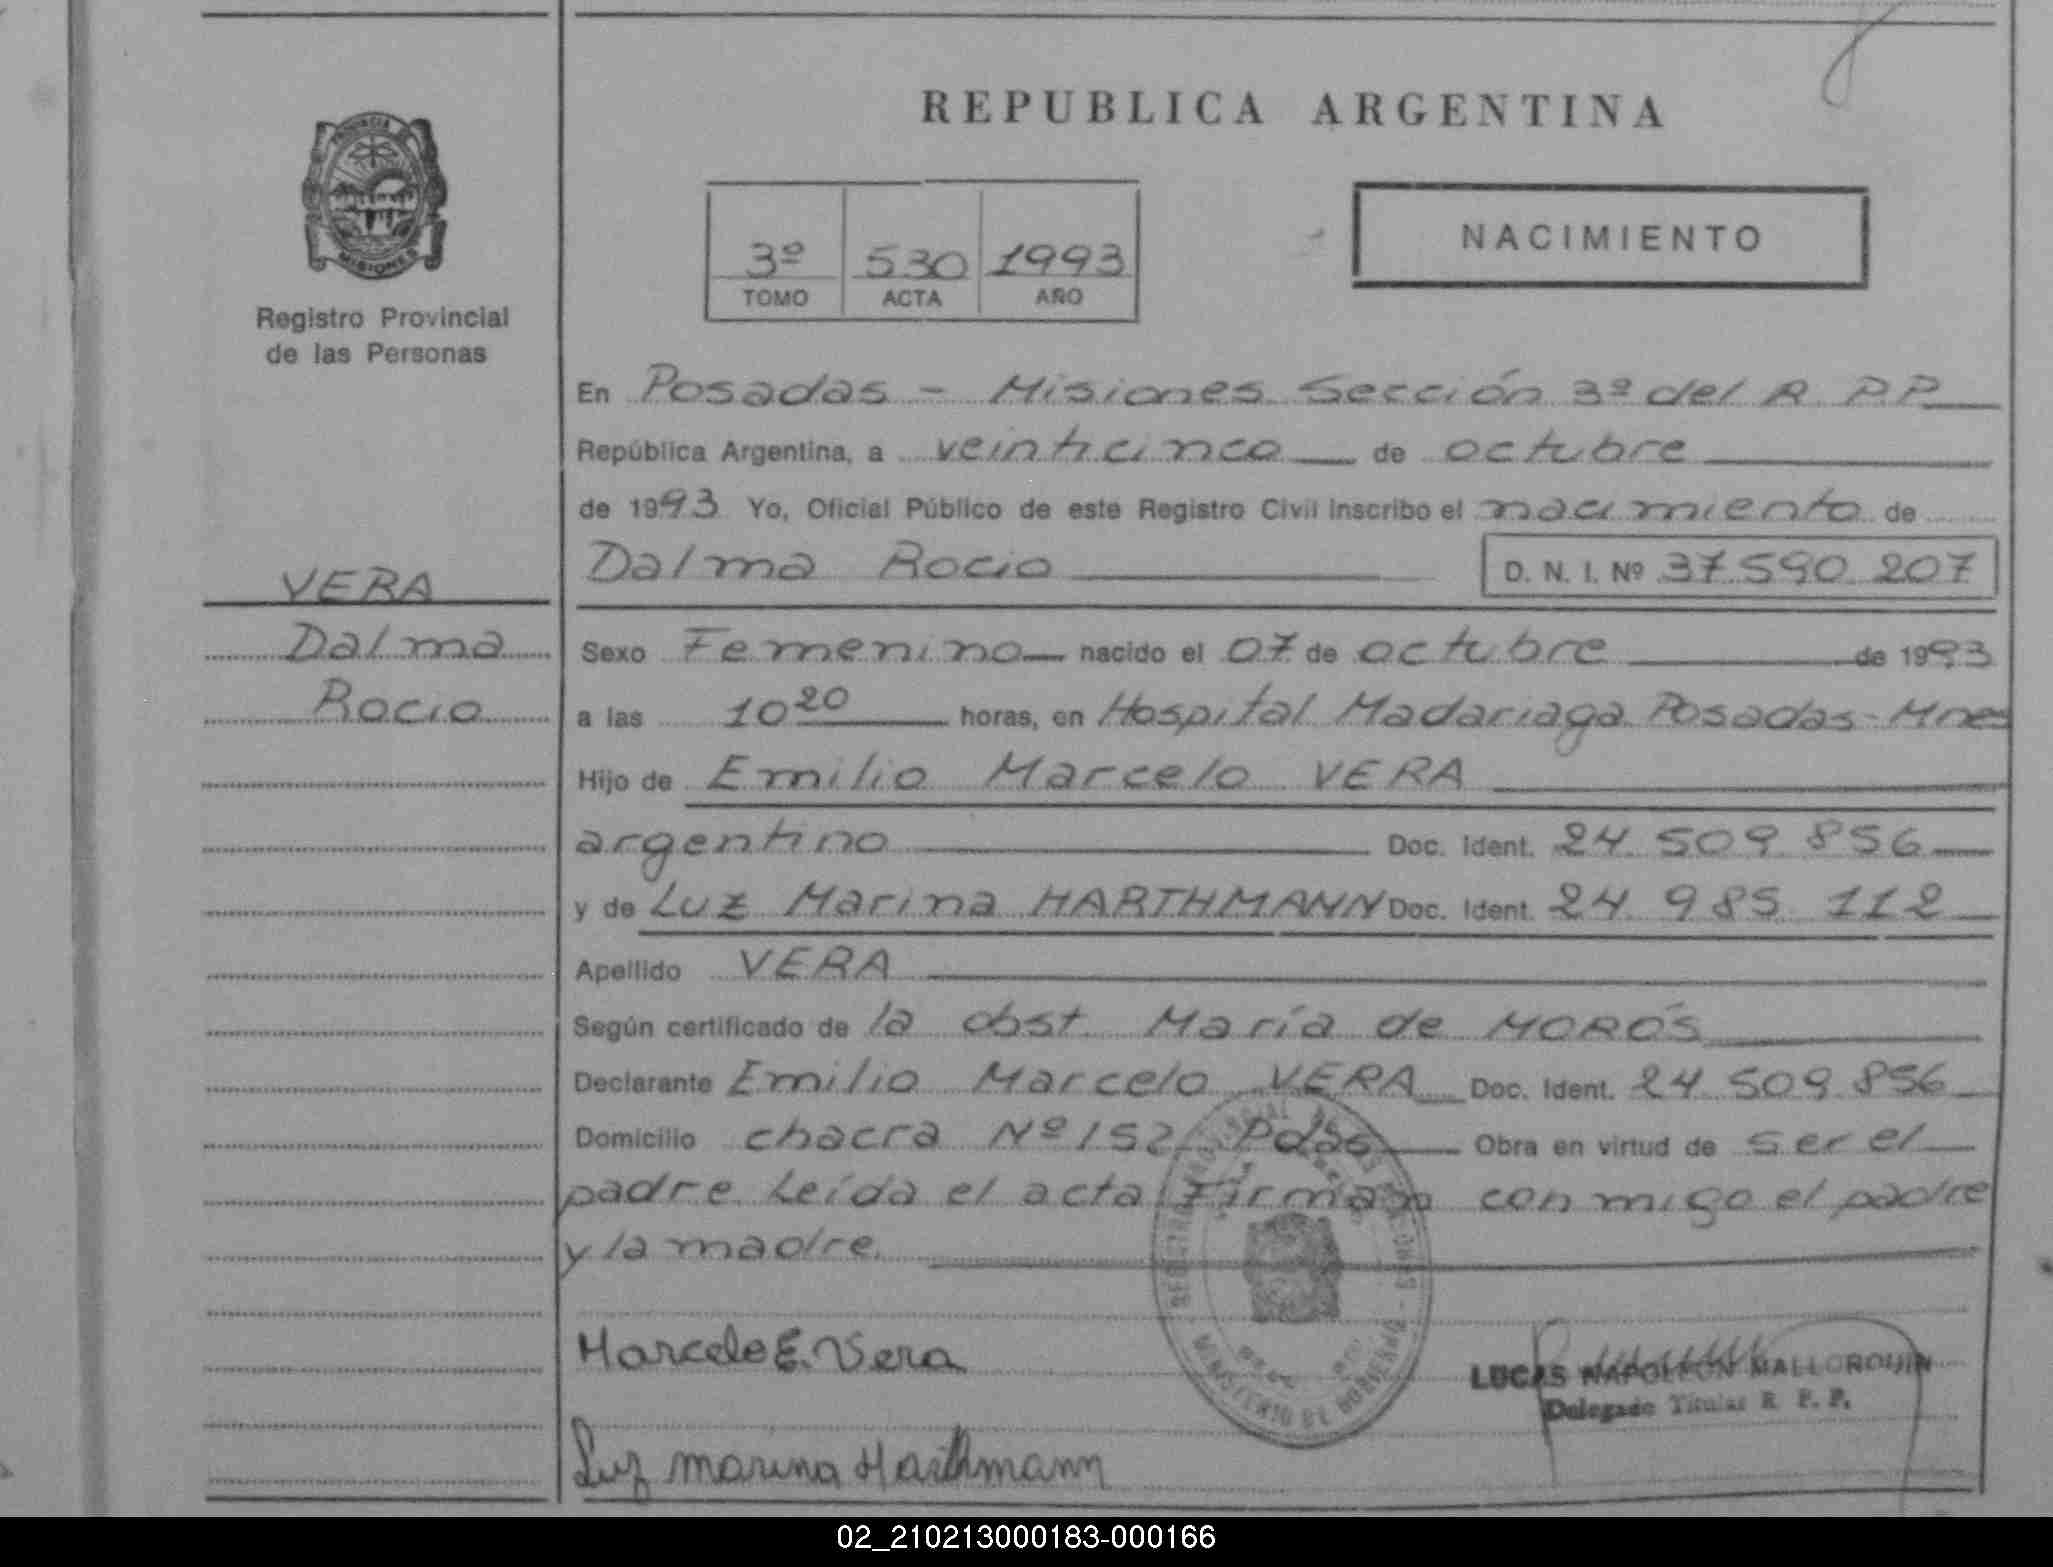 REPUBLICA ARGENTINA
PROVINCIA DE
MISIONES
Registro Provincial
de las Personas
3º 530 1993
TOMO ACTA AÑO
NACIMIENTO
En Posadas - Misiones Sección 3º del R P.P.
República Argentina, a veinticinco de octubre
de 1993 Yo, Oficial Público de este Registro Civil inscribo el nacimiento de
Dalma Rocio D. N. I. Nº 37 590 207
VERA
Dalma
Rocio
Sexo Femenino nacido el 07 de octubre de 1993
a las 10 20 horas, en Hospital Madariaga Posadas - Mnes
Hijo de Emilio Marcelo VERA
argentino Doc. Ident. 24 509 856
y de Luz Marina HARTHMANN Doc. Ident. 24 985 112
Apellido VERA
Según certificado de la obst. María de MORÓS
Declarante Emilio Marcelo VERA Doc. Ident. 24 509 856
Domicilio chacra Nº 152 Pdas Obra en virtud de ser el
padre Leída el acta Firman con migo el padre
y la madre.
MINISTERIO DE GOBIERNO
Marcelo E. Vera
LUCAS NAPOLEON MALLORQUIN
Delegado Titular R. P. P.
Luz marina Harthmann
02_210213000183-000166